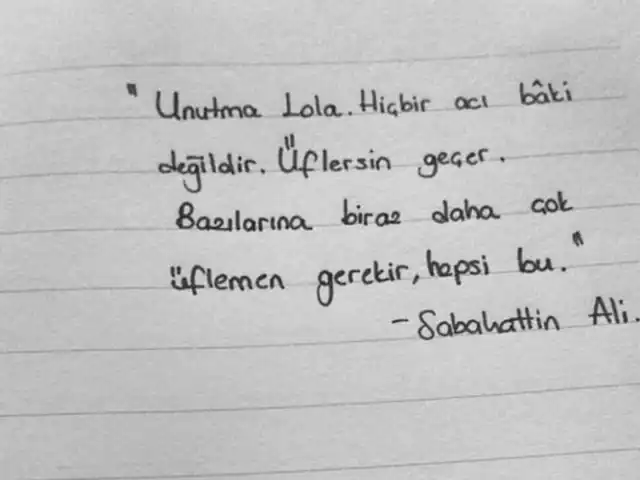 "Unutma Lola. Hiçbir acı bâki
değildir. Üflersin geçer.
Bazılarına biraz daha çok
üflemen gerekir, hepsi bu."
- Sabahattin Ali.